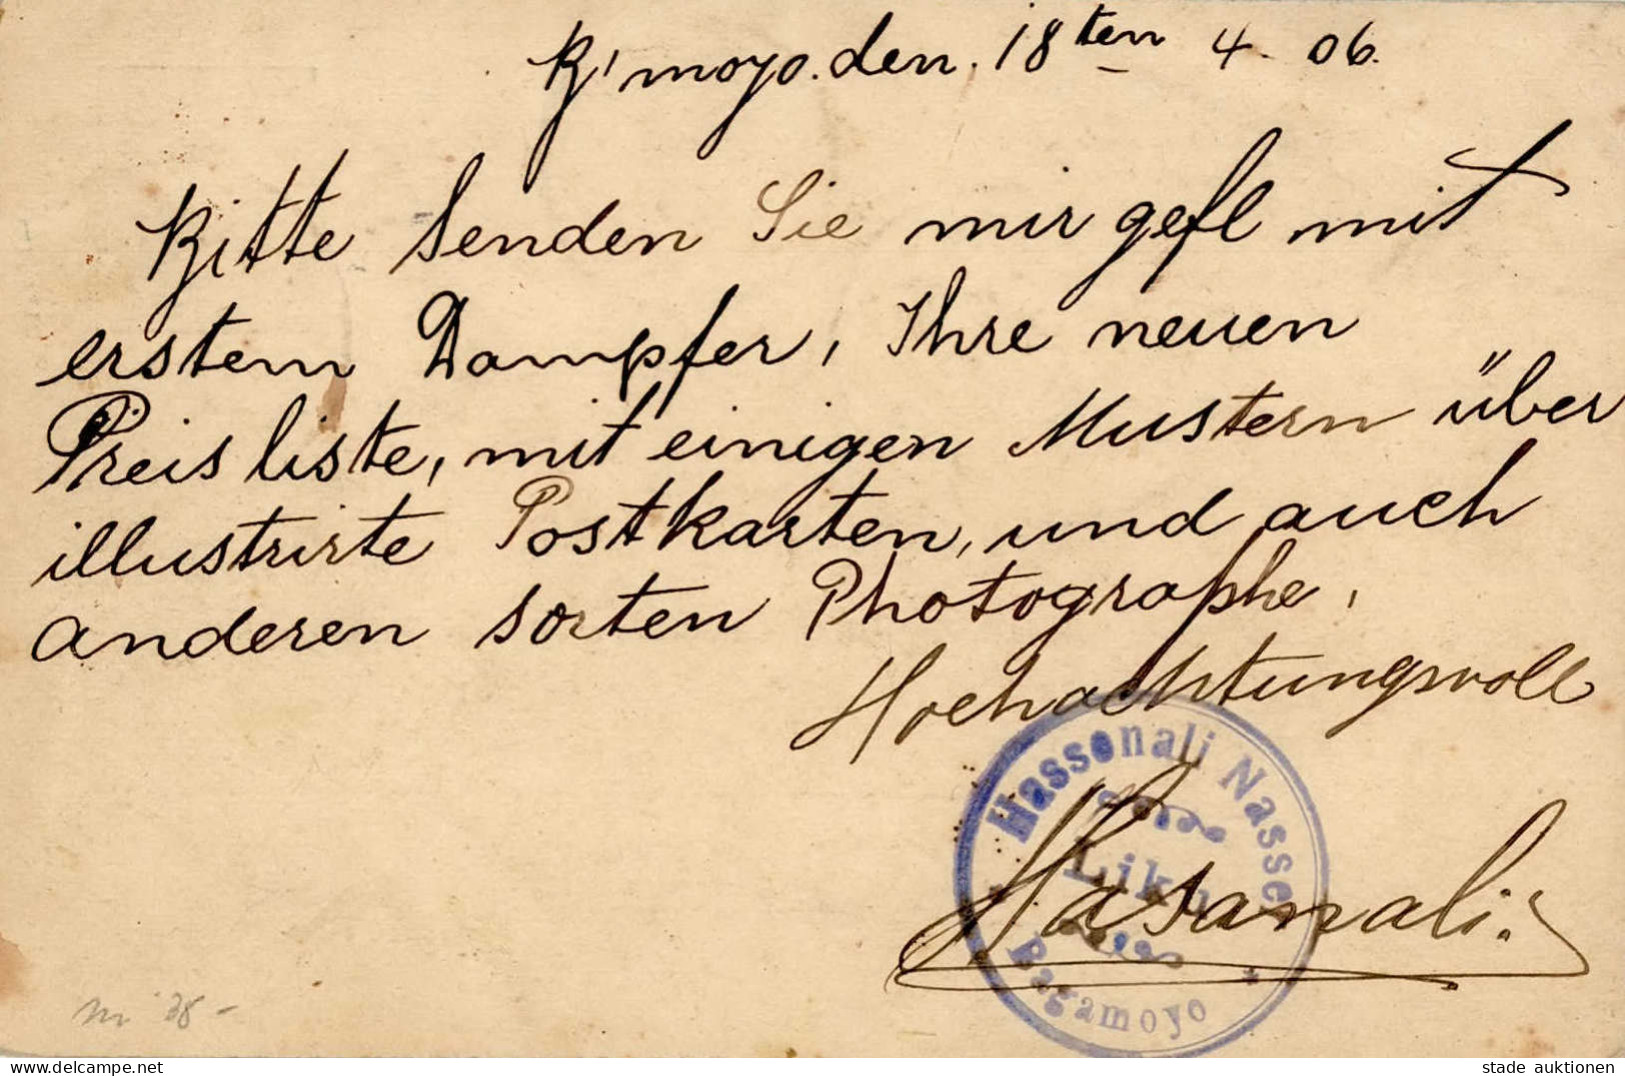 B'moyo. den. 18ten 4. 06.
Bitte Senden Sie mir gefl mit
erstem Dampfer, Ihre neuen
Preis liste, mit einigen Mustern über
illustrirte Postkarten, und auch
anderen sorten Photographe,
Hochachtungsvoll
Hassonali Nasser
Hasanali.
Bagamoyo
www.delcampe.net
stade auktionen